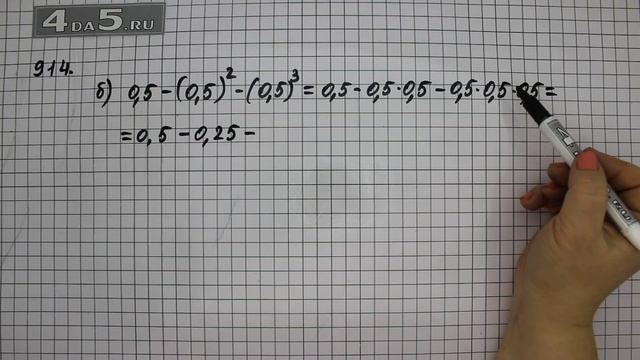 4DA5.RU
914.
б) 0,5 - (0,5)² - (0,5)³ = 0,5 - 0,5 · 0,5 - 0,5 · 0,5 · 0,5 =
= 0,5 - 0,25 -